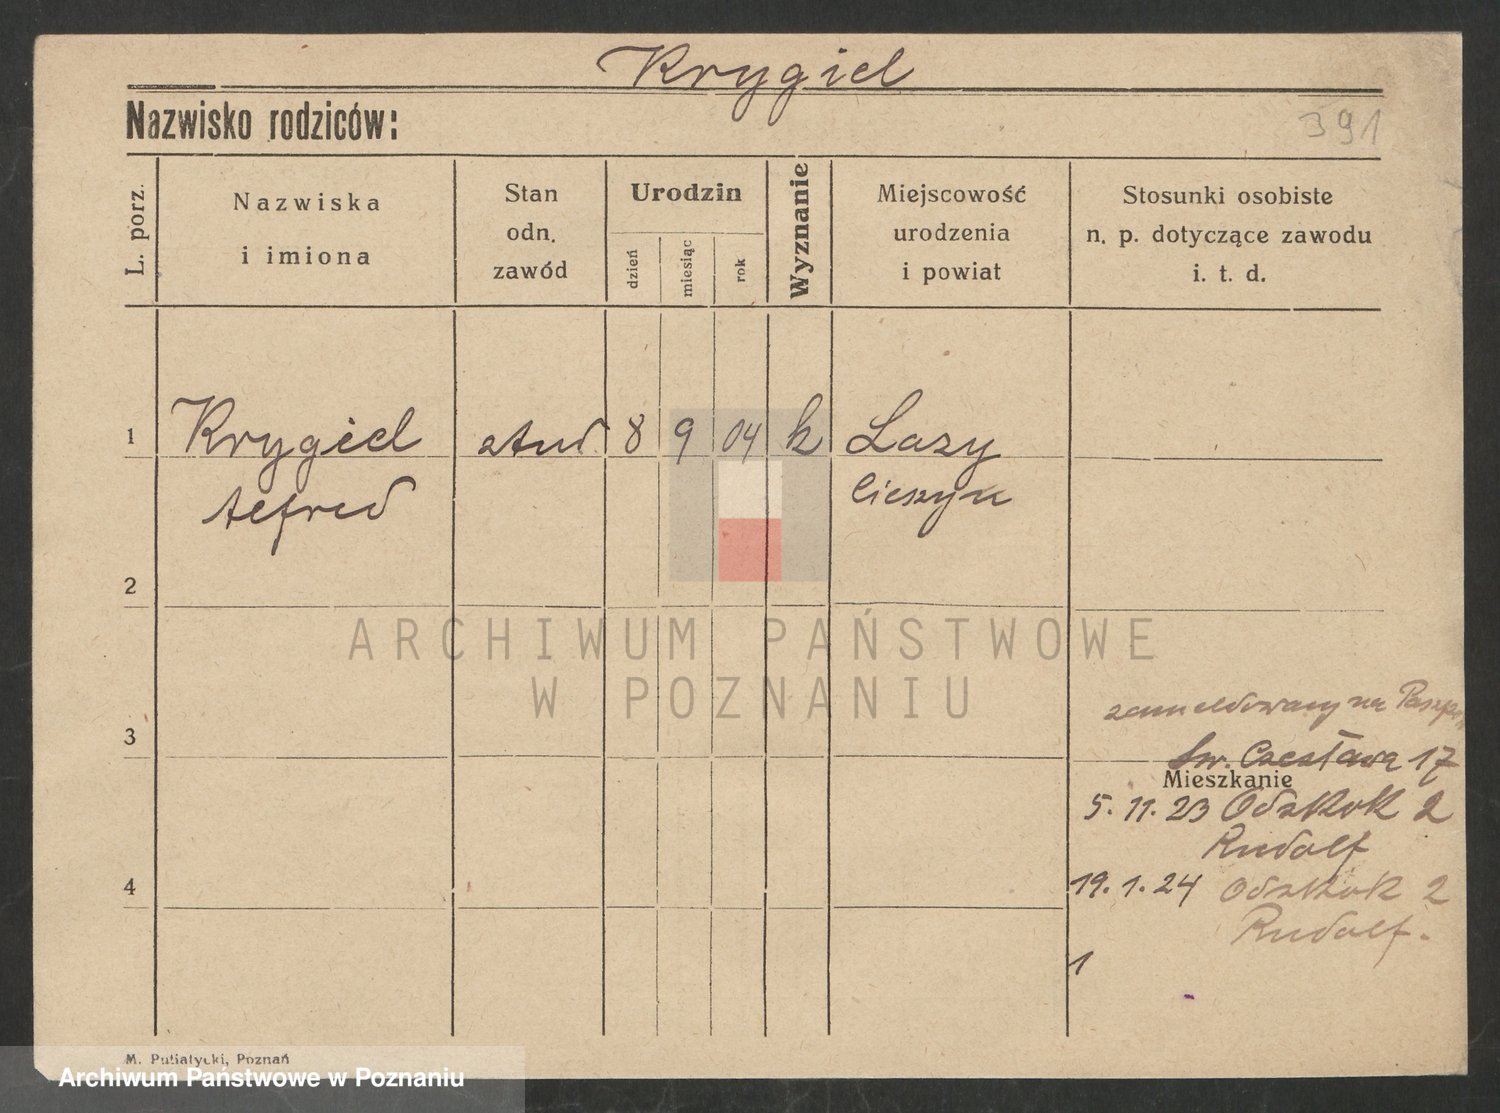 Krygiel
Nazwisko rodziców:
391
L. porz.
Nazwiska
i imiona
Stan
odn.
zawód
Urodzin
dzień
miesiąc
rok
Wyznanie
Miejscowość
urodzenia
i powiat
Stosunki osobiste
n. p. dotyczące zawodu
i. t. d.
1 Krygiel stud 8 9 04 k Lazy
Alfred Cieszyn
2
ARCHIWUM PAŃSTWOWE
W POZNANIU
zameldowany na
3
św. Czesława 17
Mieszkanie
5. 11. 23 Odskok 2
Rudolf
4
19. 1. 24 Odskok 2
Rudolf.
1
M. Putiatycki, Poznań
Archiwum Państwowe w Poznaniu